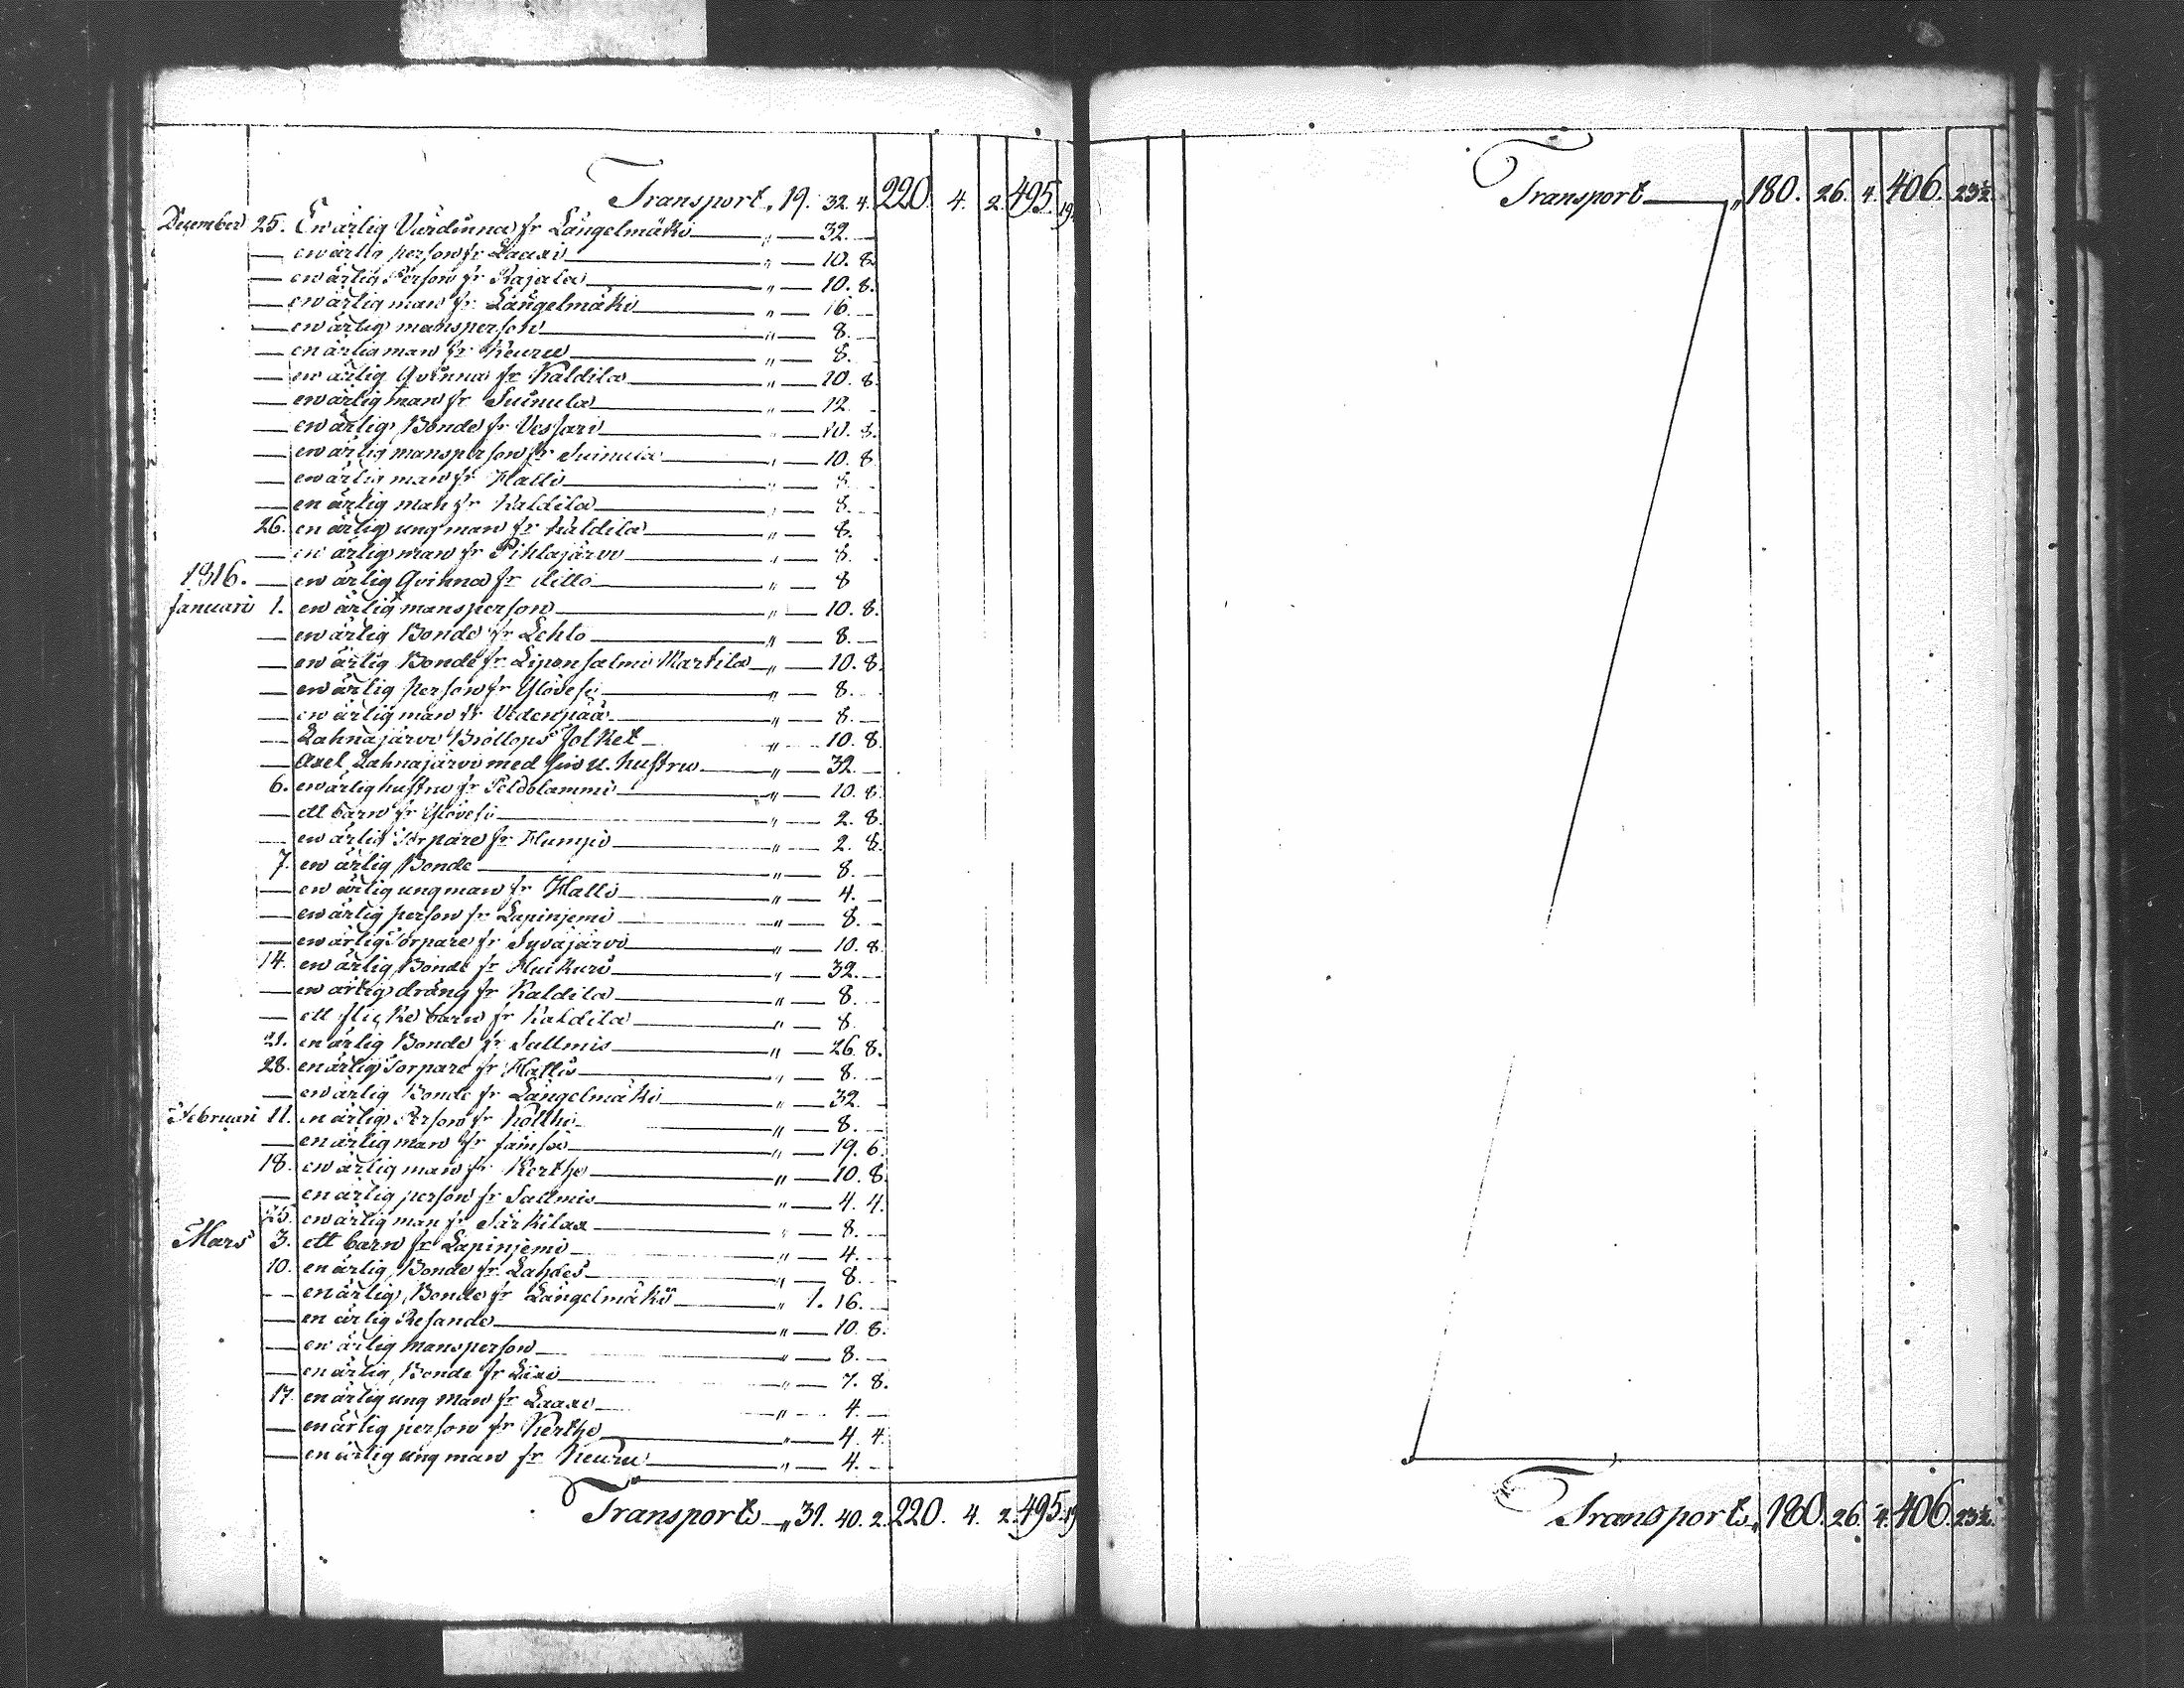 Transport „ 19. 32. 4. 220. 4. 2. 495. 19.
December 25. En ärlig Värdinna fr Längelmäki „ — 32. —
— en ärlig person fr Laaxi „ — 10. 8.
— en ärlig Person fr Kajala „ — 10. 8.
— en ärlig man fr Längelmäki „ — 16. —
— en ärlig mansperson „ — 8. —
— en ärlig man fr Keuru „ — 8.
— en ärlig Qvinna fr Kaldila „ — 10. 8.
— en ärlig man fr Suinula „ — 12. —
— en ärlig Bonde fr Vessari „ — 10. 8.
— en ärlig mansperson fr Suinula „ — 10. 8.
— en ärlig man fr Halli „ — 8. —
— en ärlig man fr Kaldila „ — 8. —
26. en ärlig ung man fr Kaldila „ — 8. —
— en ärlig man fr Pihlajärvi „ — 8. —
1816. — en ärlig Qvinna fr ditto „ — 8
Januari 1. en ärlig mansperson „ — 10. 8.
— en ärlig Bonde fr Lehto „ — 8. —
— en ärlig Bonde fr Liponsalmi Martila „ — 10. 8.
— en ärlig person fr Ylövesi „ — 8. —
— en ärlig man fr Vedenpää „ — 8. —
— Lahnajärvi Bröllops folket „ — 10. 8.
— Axel Lahnajärvi med sin u. hustru „ — 32. —
6. en ärlig hustru fr Peldolammi „ — 10. 8.
— ett barn fr Ylövesi „ — 2. 8.
— en ärlig Torpare fr Humpi „ — 2. 8.
7. en ärlig Bonde „ — 8. —
— en ärlig ung man fr Halli „ — 4. —
— en ärlig person fr Lapinjemi „ — 8. —
— en ärlig Torpare fr Syväjärvi „ — 10. 8.
14. en ärlig Bonde fr Huikuri „ — 32. —
— en ärlig dräng fr Kaldila „ — 8. —
— ett flicke barn fr Kaldila „ — 8.
21. en ärlig Bonde fr Sallmis „ — 26. 8.
28. en ärlig Torpare fr Halli „ — 8. —
— en ärlig Bonde fr Längelmäki „ — 32. —
Februari 11. en ärlig Person fr Kolthi „ — 8. —
— en ärlig man fr Jämsö „ — 19. 6.
18. en ärlig man fr Kerthe „ — 10. 8.
— en ärlig person fr Sallmis „ — 4. 4.
25. en ärlig man fr Särkilax „ — 8. —
Mars 3. ett barn fr Lapinjemi „ — 4. —
10. en ärlig Bonde fr Lahdes „ — 8. —
— en ärlig Bonde fr Längelmäki „ 1. 16. —
— en ärlig Resande „ — 10. 8.
— en ärlig mansperson „ — 8. —
— en ärlig Bonde fr „ — 7. 8.
17. en ärlig ung man fr Laaxi „ — 4. —
— en ärlig person fr Kerthe „ — 4. 4.
— en ärlig ung man fr Keuru „ — 4. —
Transport „ 31. 40. 2. 220. 4. 2. 495. 19
Transport „ 180. 26. 4. 406. 23½.
Transport „ 180. 26. 4. 406. 23½.